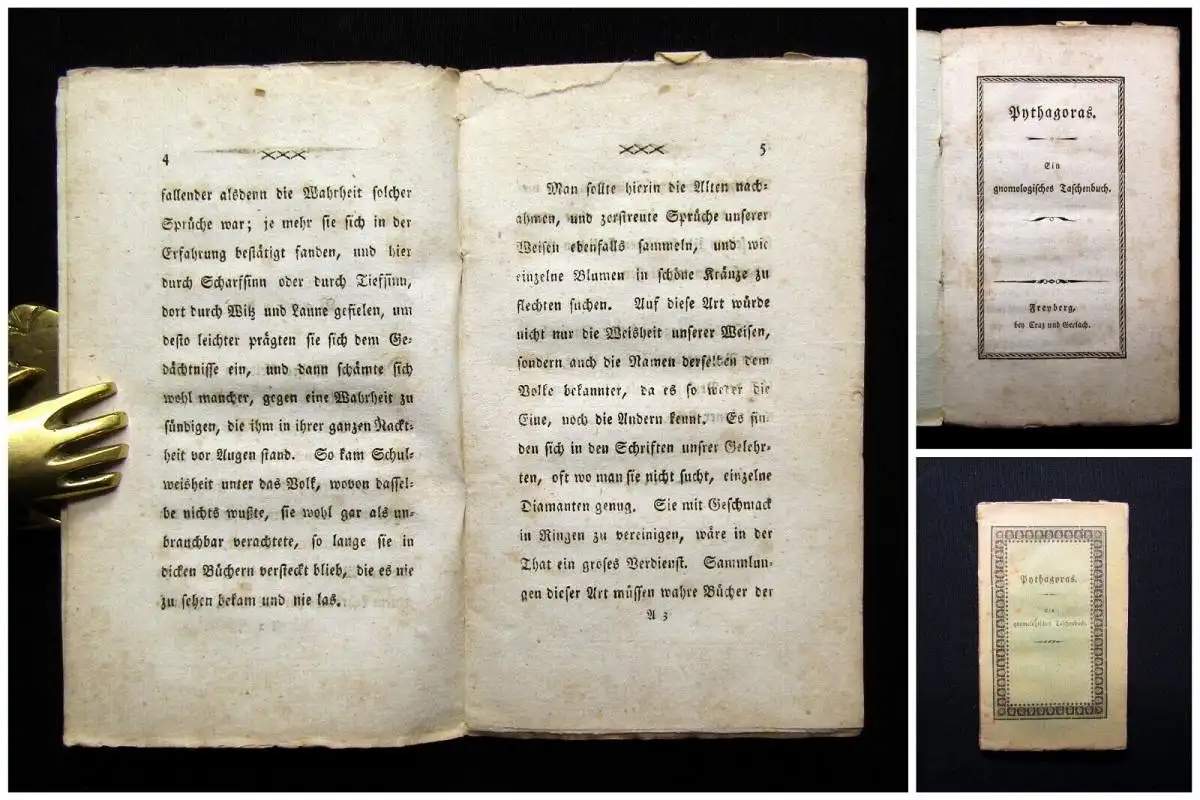 4
fallender alsdenn die Wahrheit solcher
Sprüche war; je mehr sie sich in der
Erfahrung bestätigt fanden, und hier
durch Scharfsinn oder durch Tiefsinn,
dort durch Witz und Laune gefielen, um
desto leichter prägten sie sich dem Ge-
dächtnisse ein, und dann schämte sich
wohl mancher, gegen eine Wahrheit zu
sündigen, die ihm in ihrer ganzen Nackt-
heit vor Augen stand. So kam Schul-
weisheit unter das Volk, wovon dassel-
be nichts wußte, sie wohl gar als un-
brauchbar verachtete, so lange sie in
dicken Büchern versteckt blieb, die es nie
zu sehen bekam und nie las.
5
Man sollte hierin die Alten nach-
ahmen, und zerstreute Sprüche unserer
Weisen ebenfalls sammeln, und wie
einzelne Blumen in schöne Kränze zu
flechten suchen. Auf diese Art würde
nicht nur die Weisheit unserer Weisen,
sondern auch die Namen derselben dem
Volke bekannter, da es so weder die
Eine, noch die Andern kennt. Es fin-
den sich in den Schriften unsrer Gelehr-
ten, oft wo man sie nicht sucht, einzelne
Diamanten genug. Sie mit Geschmack
in Ringen zu vereinigen, wäre in der
That ein großes Verdienst. Sammlun-
gen dieser Art müssen wahre Bücher der
A 3
Pythagoras.
Ein
gnomologisches Taschenbuch.
Freyberg,
bey Craz und Gerlach.
Pythagoras.
Ein
gnomologisches Taschenbuch.